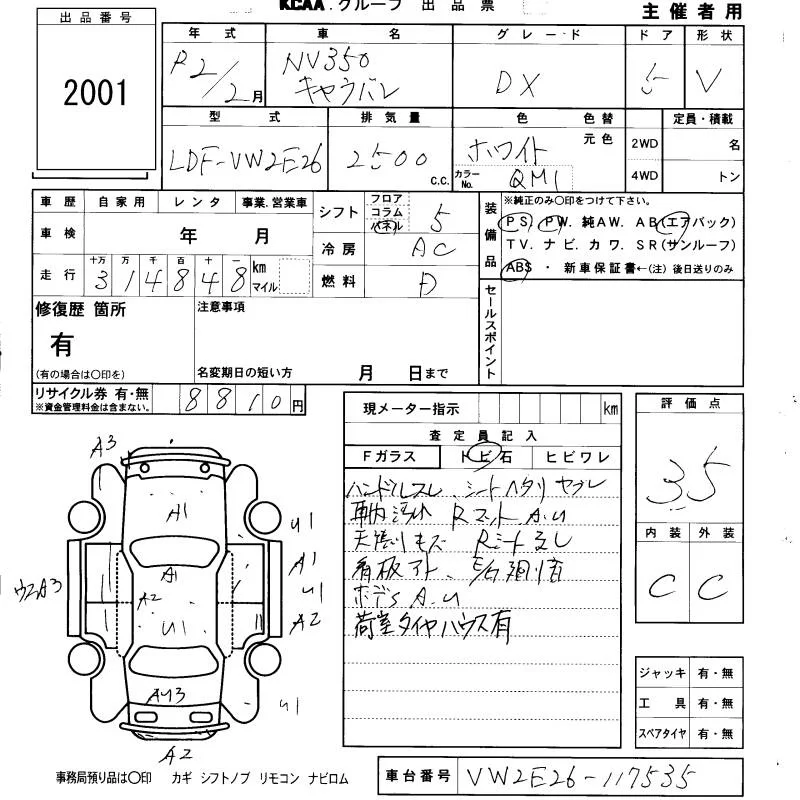 KCAA.グループ 出品票
主催者用
出品番号
2001
年式 車名 グレード ドア 形状
R2/2月 NV350 キャラバン DX 5 V
型式 排気量 色 色替 元色 定員・積載
LDF-VW2E26 2500 C.C. ホワイト カラーNo. QM1 2WD 4WD 名 トン
車歴 自家用 レンタ 事業.営業車
車検 年 月
走行 十万 万 千 百 十 一 km マイル
314848
シフト フロア コラム パネル 5
冷房 AC
燃料 D
装備品 ※純正のみ○印をつけて下さい。
PS. PW. 純AW. AB(エアバック)
TV. ナビ. カワ. SR(サンルーフ)
ABS ・ 新車保証書←(注) 後日送りのみ
セールスポイント
修復歴 箇所
有
(有の場合は○印を)
注意事項
名変期日の短い方 月 日まで
リサイクル券 有・無
※資金管理料金は含まない。
8810円
現メーター指示 km
査定員記入
Fガラス トビ石 ヒビワレ
ハンドルスレ、シートヘタリ ヤブレ
車内汚れ Rマット A.U
天張りキズ Rシート
看板アト、
ボデS A.U
荷室タイヤハウス有
評価点
3.5
内装 外装
C C
A3
A1
U1
A1
A1
U1
A2
A2
U1
ウスA3
AU3
U1
A2
ジャッキ 有・無
工具 有・無
スペアタイヤ 有・無
事務局預り品は○印 カギ シフトノブ リモコン ナビロム
車台番号 VW2E26-117535